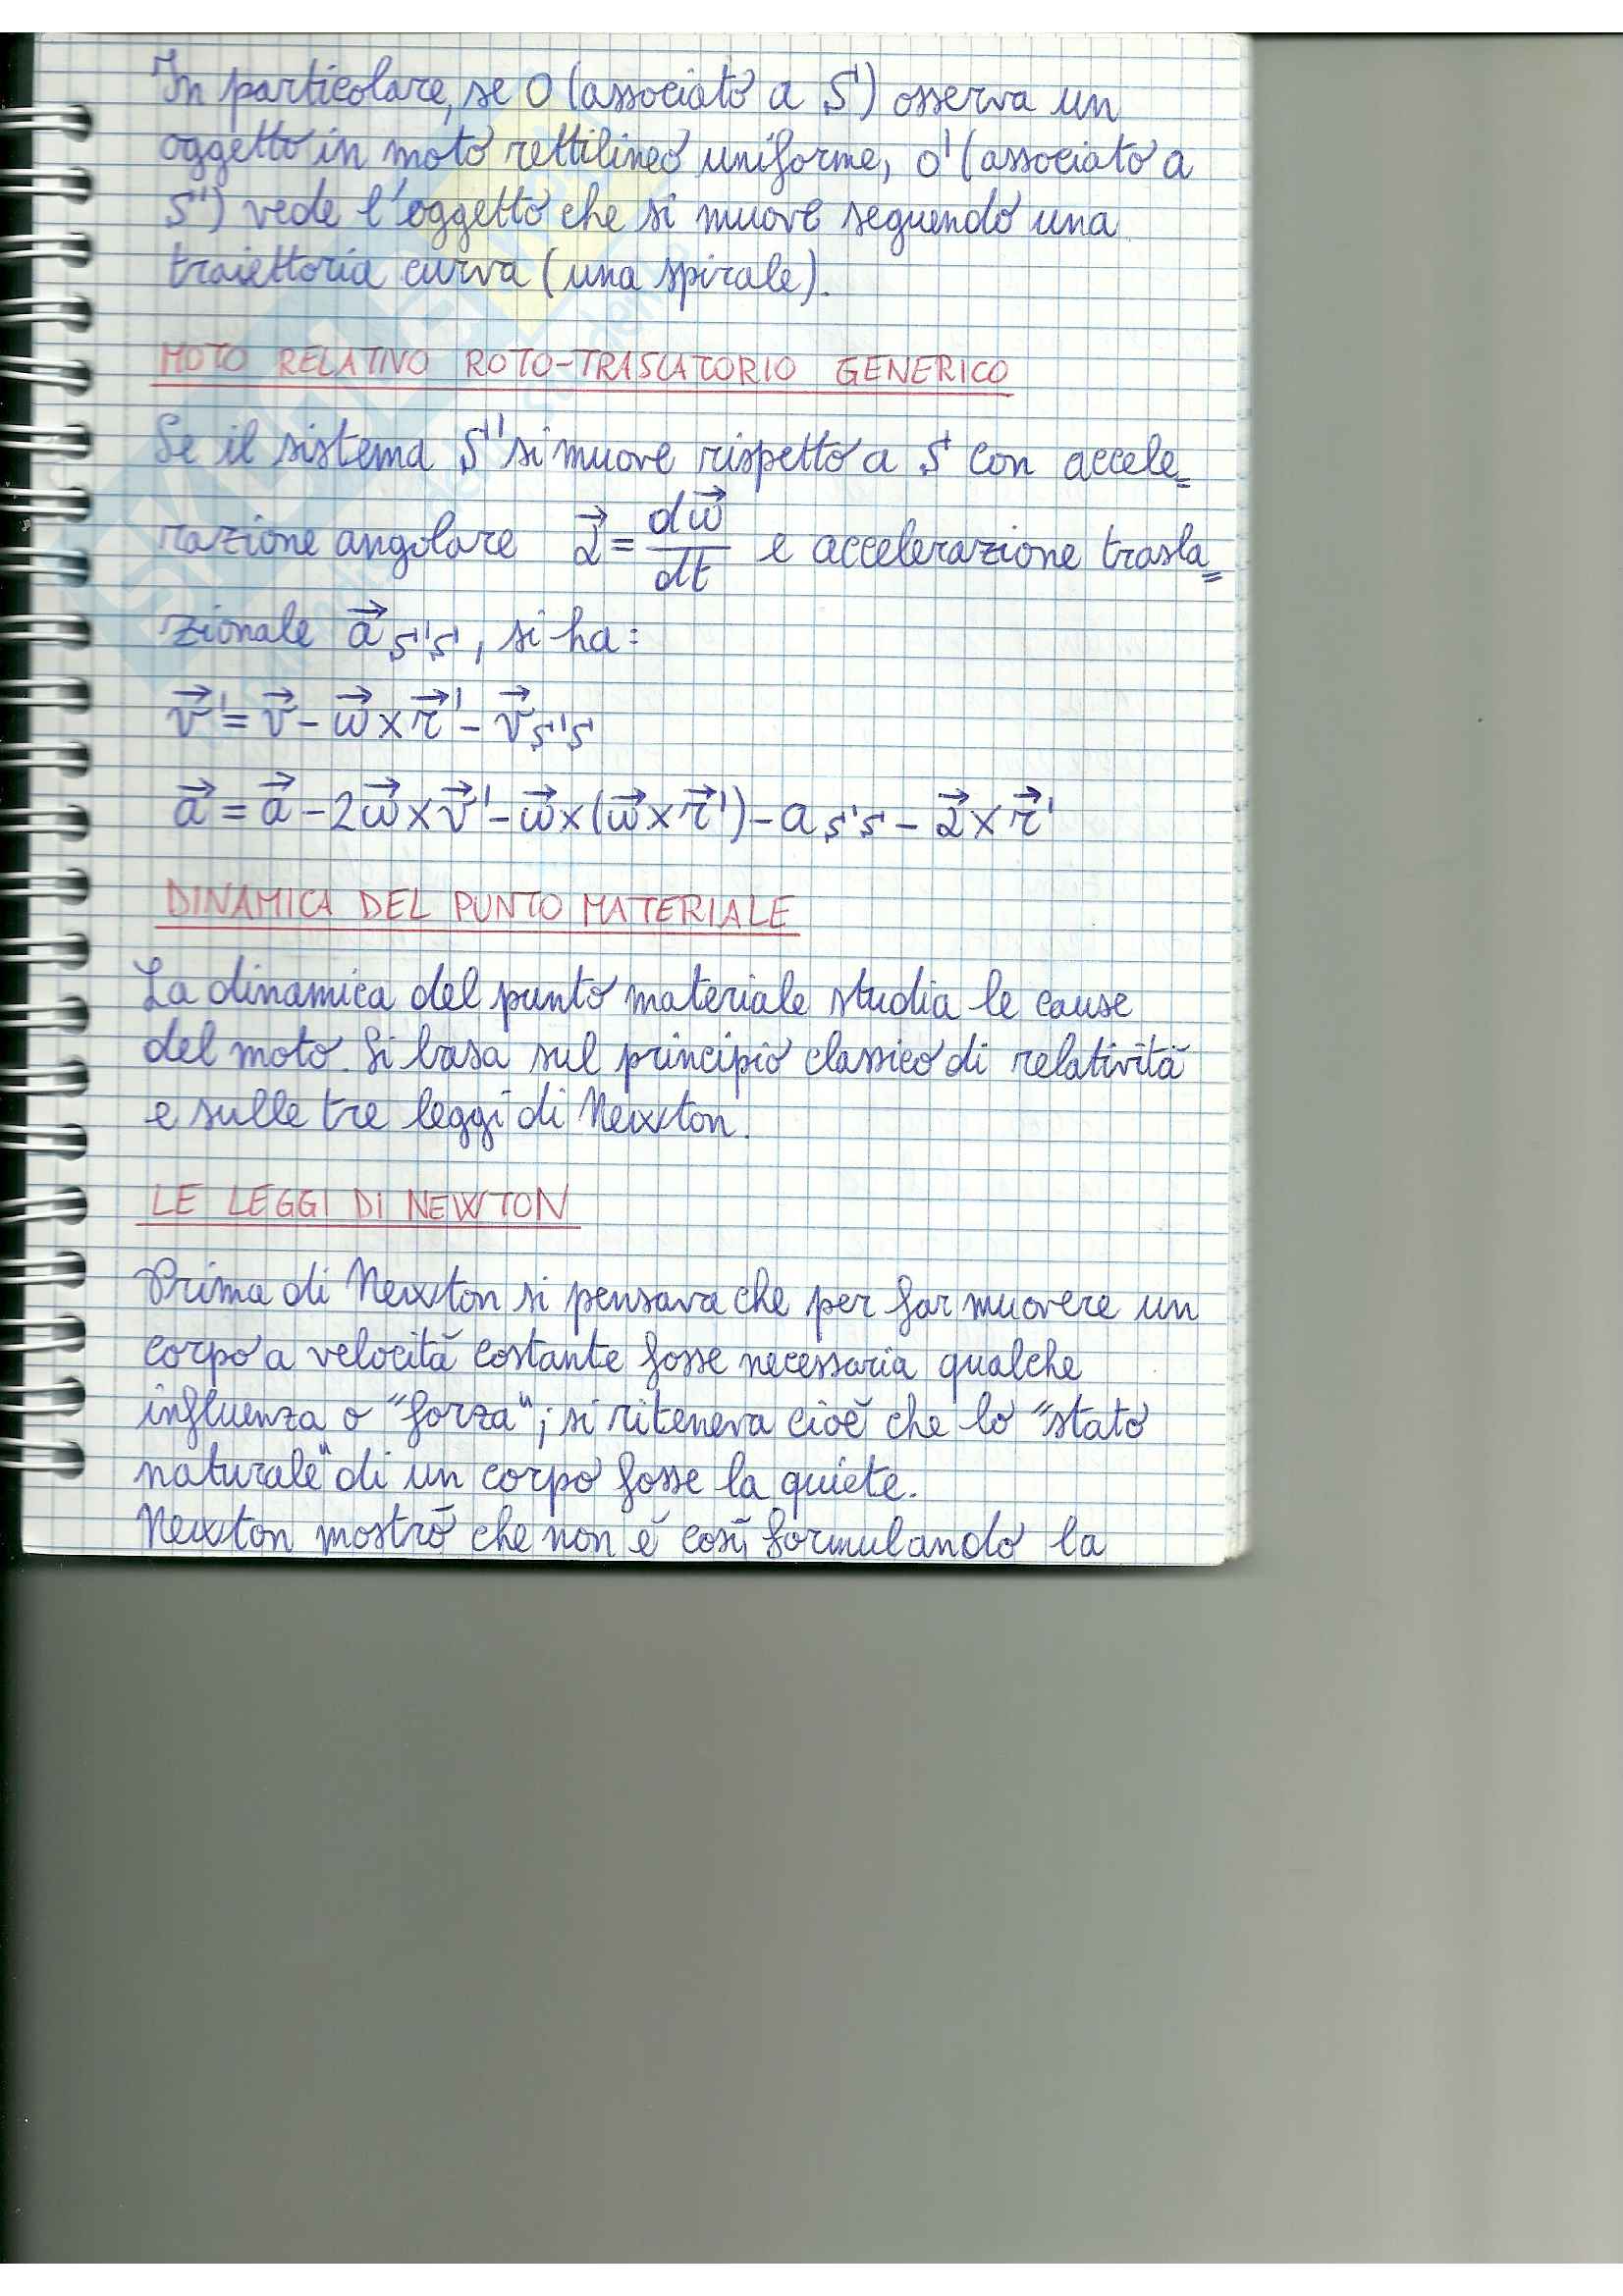 In particolare, se O (associato a S) osserva un
oggetto in moto rettilineo uniforme, O' (associato a
S') vede l'oggetto che si muove seguendo una
traiettoria curva (una spirale).
MOTO RELATIVO ROTO-TRASLATORIO GENERICO
Se il sistema S' si muove rispetto a S con accele=
razione angolare α⃗ = dω⃗/dt e accelerazione trasla=
zionale a⃗ S'S, si ha:
v⃗' = v⃗ - ω⃗ × r⃗' - v⃗ S'S
a⃗ = a⃗ - 2ω⃗ × v⃗' - ω⃗ × (ω⃗ × r⃗') - a S'S - α⃗ × r⃗'
DINAMICA DEL PUNTO MATERIALE
La dinamica del punto materiale studia le cause
del moto. Si basa sul principio classico di relatività
e sulle tre leggi di Newton.
LE LEGGI DI NEWTON
Prima di Newton si pensava che per far muovere un
corpo a velocità costante fosse necessaria qualche
influenza o "forza"; si riteneva cioè che lo "stato
naturale" di un corpo fosse la quiete.
Newton mostrò che non è così, formulando la